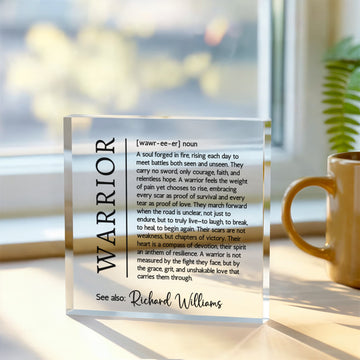 WARRIOR
[wawr-ee-er] noun
A soul forged in fire, rising each day to
meet battles both seen and unseen. They
carry no sword, only courage, faith, and
relentless hope. A warrior feels the weight
of pain yet chooses to rise, embracing
every scar as proof of survival and every
tear as proof of love. They march forward
when the road is unclear, not just to
endure, but to truly live—to laugh, to break,
to heal, to begin again. Their scars are not
weakness, but chapters of victory. Their
heart is a compass of devotion, their spirit
an anthem of resilience. A warrior is not
measured by the fight they face, but by
the grace, grit, and unshakable love that
carries them through.
See also: Richard Williams